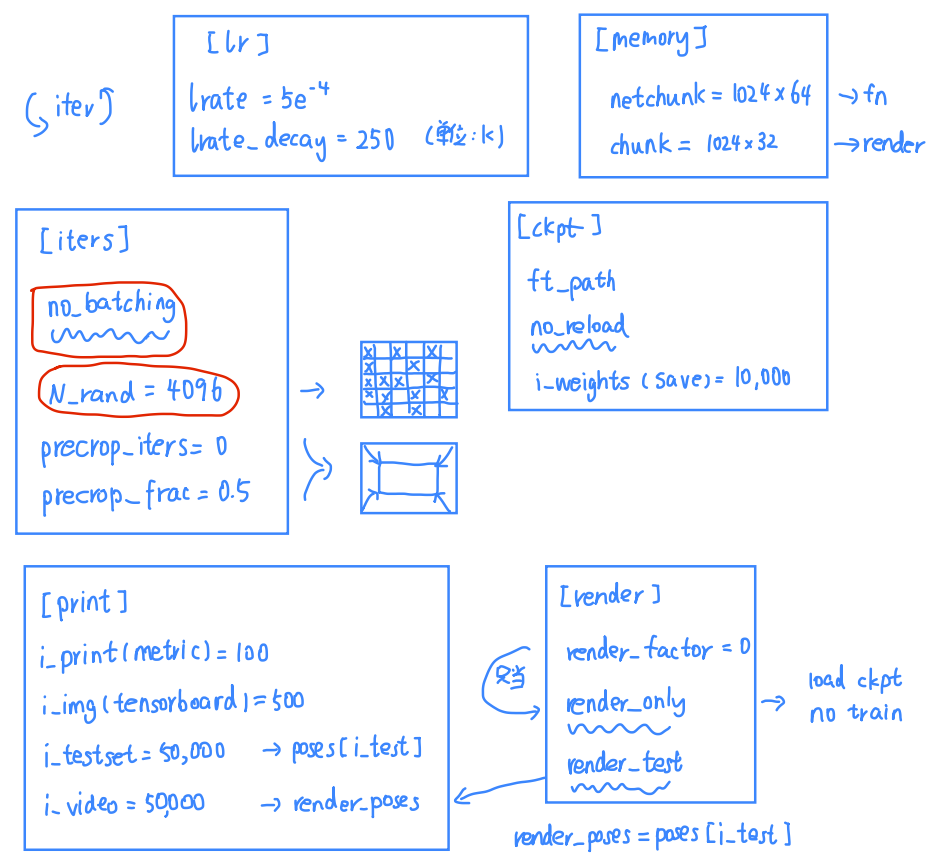 iter
[lr]
lrate = 5e⁻⁴
lrate_decay = 250 (单位:k)
[memory]
netchunk = 1024×64 → fn
chunk = 1024×32 → render
[iters]
no_batching
N_rand = 4096 →
precrop_iters = 0
precrop_frac = 0.5
[ckpt]
ft_path
no_reload
i_weights (save) = 10,000
[print]
i_print(metric) = 100
i_img(tensorboard) = 500
i_testset = 50,000 → poses[i_test]
i_video = 50,000 → render_poses
[render]
render_factor = 0
只当
render_only →
render_test
load ckpt
no train
render_poses = poses[i_test]